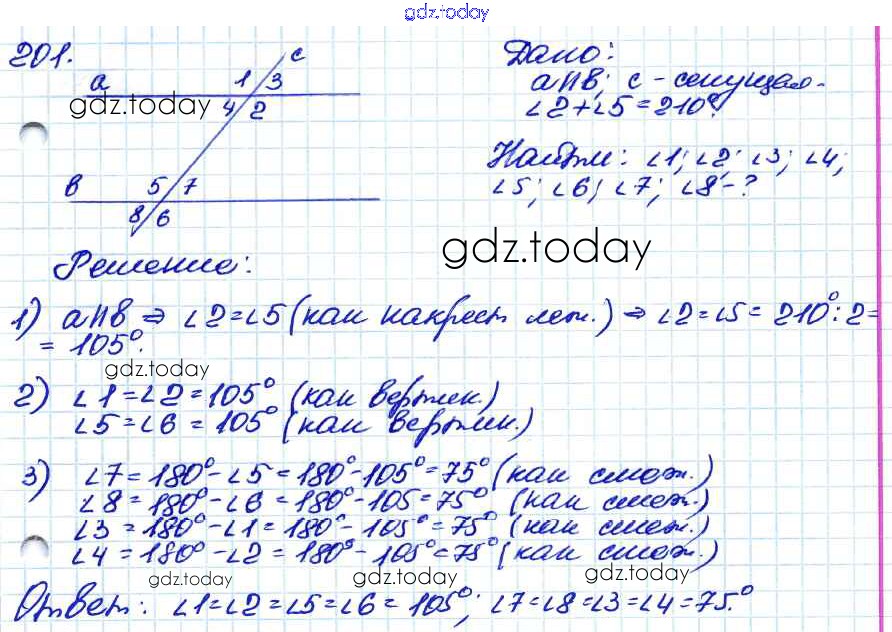 gdz.today
201.
c
a 1 3
gdz.today
4 2
b 5 7
8 6
Дано:
a II b; c - секущая.
∠2+∠5=210°.
Найти: ∠1; ∠2; ∠3; ∠4;
∠5; ∠6; ∠7; ∠8-?
gdz.today
Решение:
1) a II b ⇒ ∠2=∠5 (как накрест леж.) ⇒ ∠2=∠5= 210°:2=
= 105°.
gdz.today
2) ∠1=∠2=105° (как вертик.)
∠5=∠6 = 105° (как вертик.)
3) ∠7=180°-∠5=180°-105°=75° (как смеж.)
∠8=180°-∠6=180°-105=75° (как смеж.)
∠3=180°-∠1=180°-105°=75° (как смеж.)
∠4=180°-∠2=180°-105°=75° (как смеж.)
gdz.today gdz.today gdz.today
Ответ: ∠1=∠2=∠5=∠6= 105°; ∠7=∠8=∠3=∠4=75.°